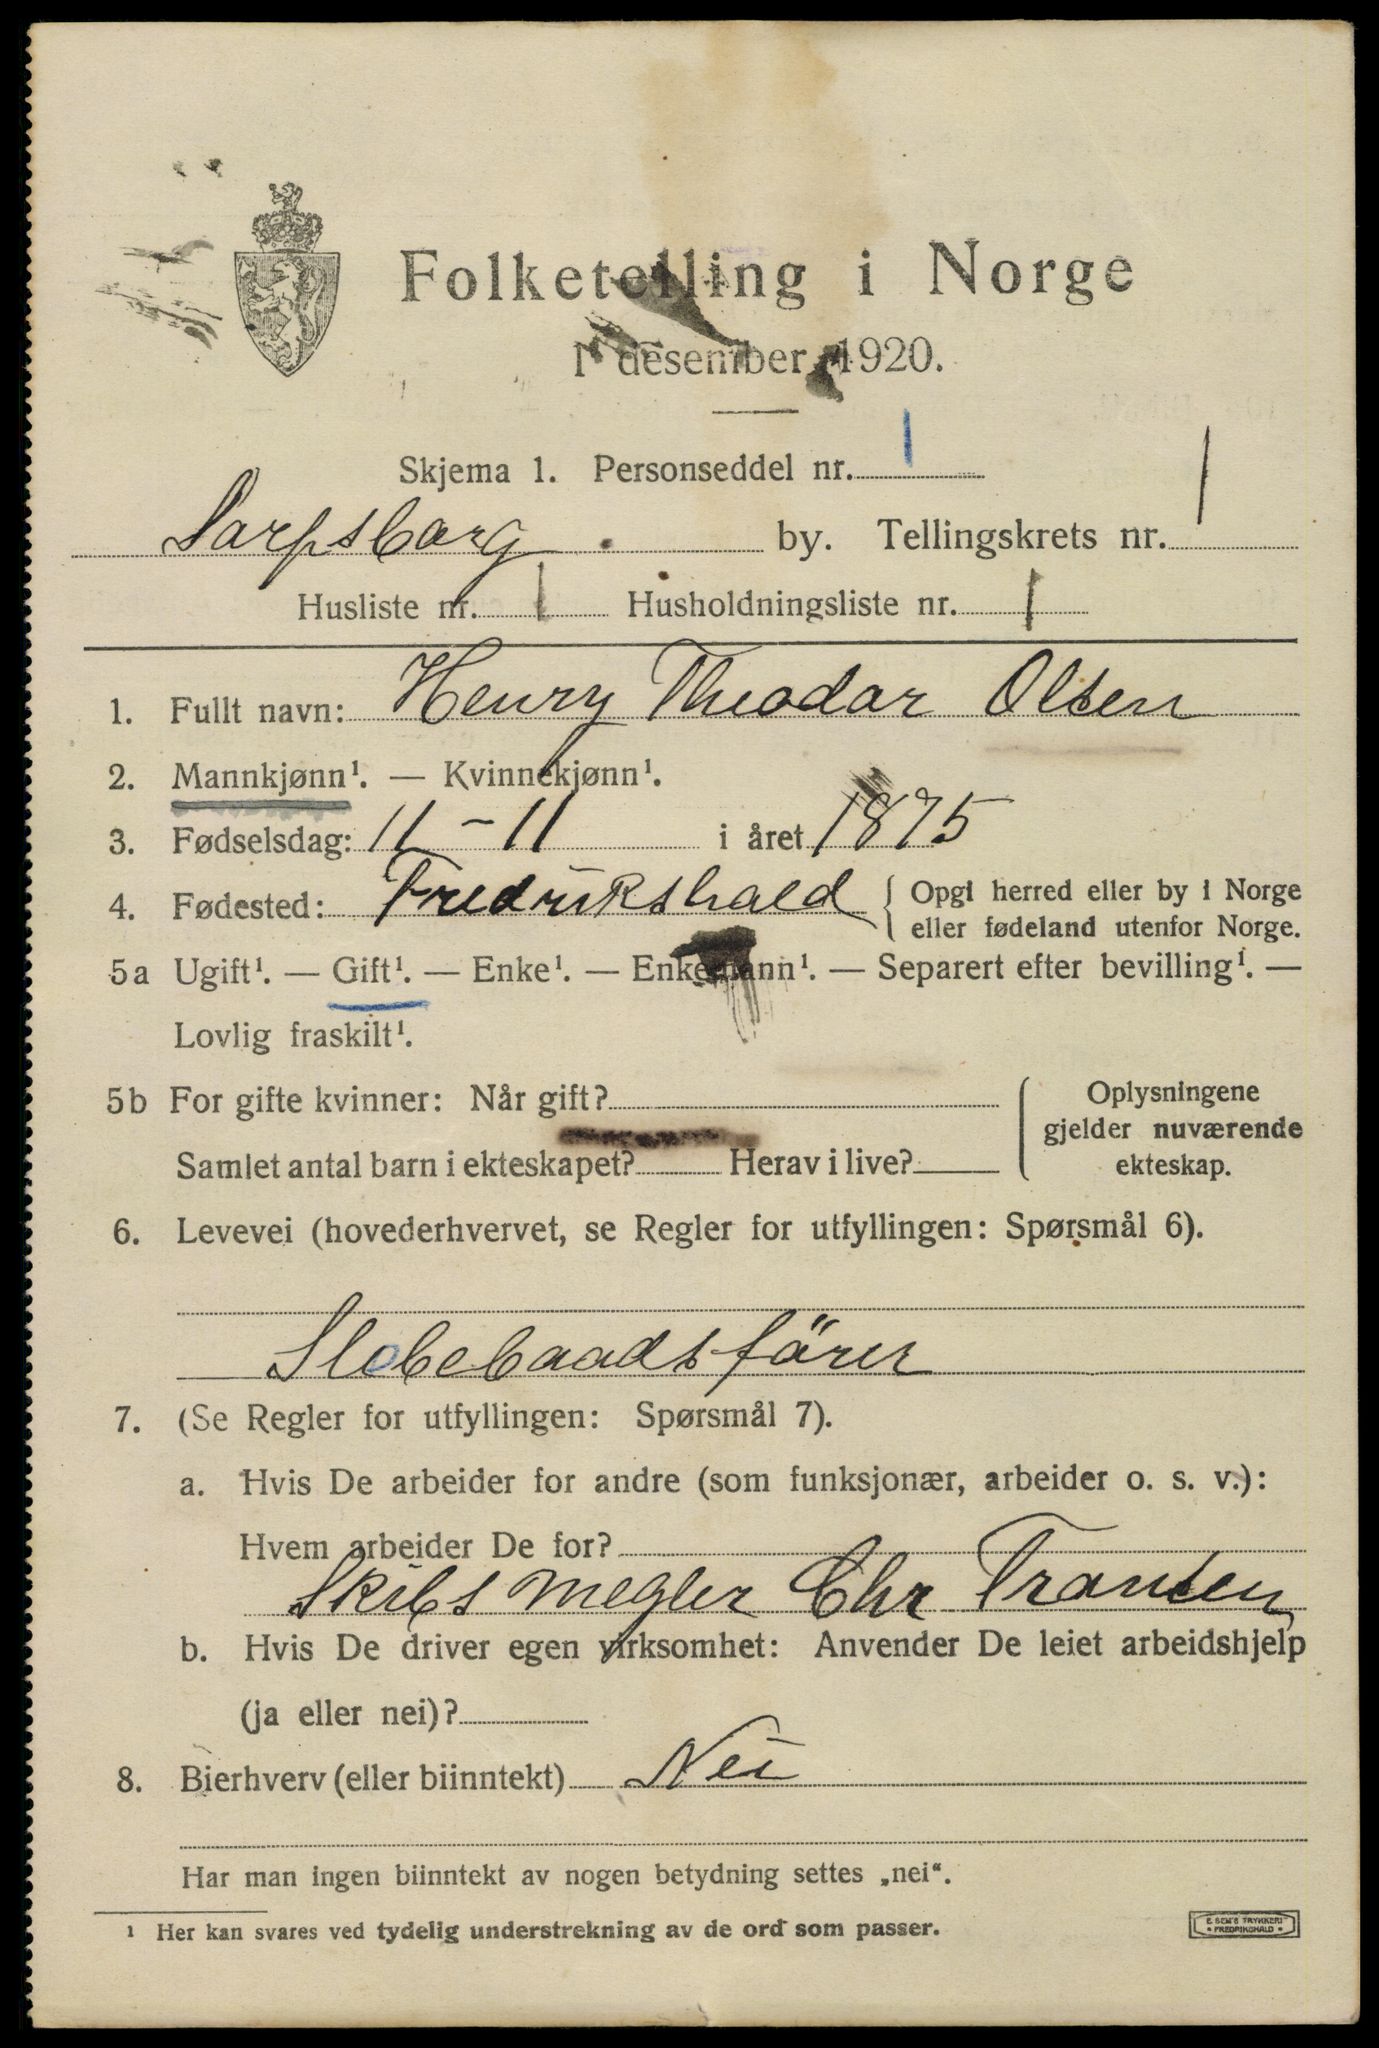 Folketelling i Norge
1 desember 1920.
Skjema 1. Personseddel nr. 1
Sarpsborg by. Tellingskrets nr. 1
Husliste nr. 1 Husholdningsliste nr. 1
1. Fullt navn: Henry Theodor Olsen
2. Mannkjønn¹. — Kvinnekjønn¹.
3. Fødselsdag: 11 - 11 i året 1875
4. Fødested: Fredrikshald { Opgi herred eller by i Norge
eller fødeland utenfor Norge.
5a Ugift¹. — Gift¹. — Enke¹. — Enkemann¹. — Separert efter bevilling¹. —
Lovlig fraskilt¹.
5b For gifte kvinner: Når gift?
Samlet antal barn i ekteskapet? Herav i live?
Oplysningene
gjelder nuværende
ekteskap.
6. Levevei (hovederhvervet, se Regler for utfyllingen: Spørsmål 6).
Slebebaadsförer
7. (Se Regler for utfyllingen: Spørsmål 7).
a. Hvis De arbeider for andre (som funksjonær, arbeider o. s. v.):
Hvem arbeider De for?
Skibsmegler Chr
b. Hvis De driver egen virksomhet: Anvender De leiet arbeidshjelp
(ja eller nei)?
8. Bierhverv (eller biinntekt) Nei
Har man ingen biinntekt av nogen betydning settes „nei“.
¹ Her kan svares ved tydelig understrekning av de ord som passer.
E. SEM'S TRYKKERI
• FREDRIKSHALD •